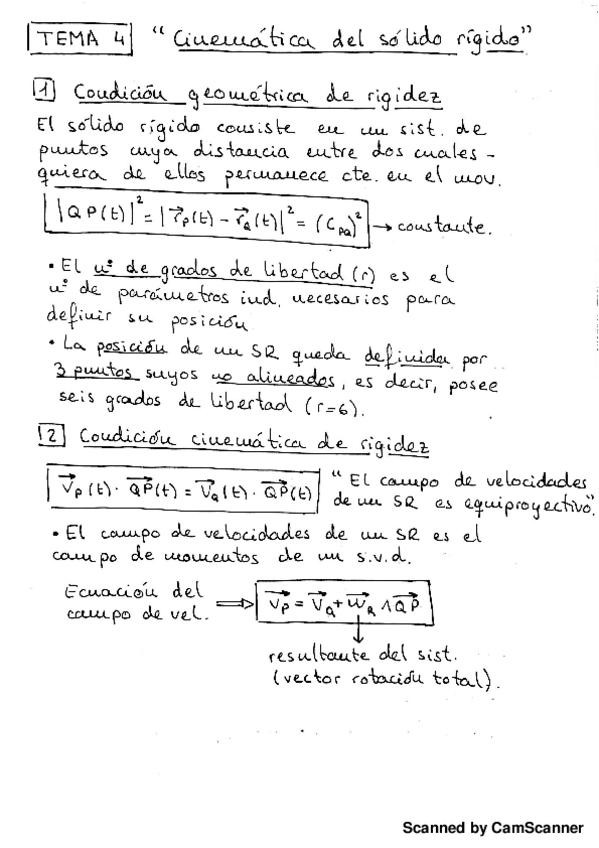 TEMA 4 "Cinemática del sólido rígido"
1 Condición geométrica de rigidez
El sólido rígido consiste en un sist. de
puntos cuya distancia entre dos cuales-
quiera de ellos permanece cte. en el mov.
|QP(t)|² = |r⃗_P(t) - r⃗_Q(t)|² = (C_PQ)² → constante.
• El nº de grados de libertad (r) es el
nº de parámetros ind. necesarios para
definir su posición
• La posición de un SR queda definida por
3 puntos suyos no alineados, es decir, posee
seis grados de libertad (r=6).
2 Condición cinemática de rigidez
V⃗_P(t) · QP⃗(t) = V⃗_Q(t) · QP⃗(t) "El campo de velocidades
de un SR es equiproyectivo".
• El campo de velocidades de un SR es el
campo de momentos de un s.v.d.
Ecuación del
campo de vel. ⇒ V⃗_P = V⃗_Q + w⃗_R ∧ QP⃗
resultante del sist.
(vector rotación total).
Scanned by CamScanner